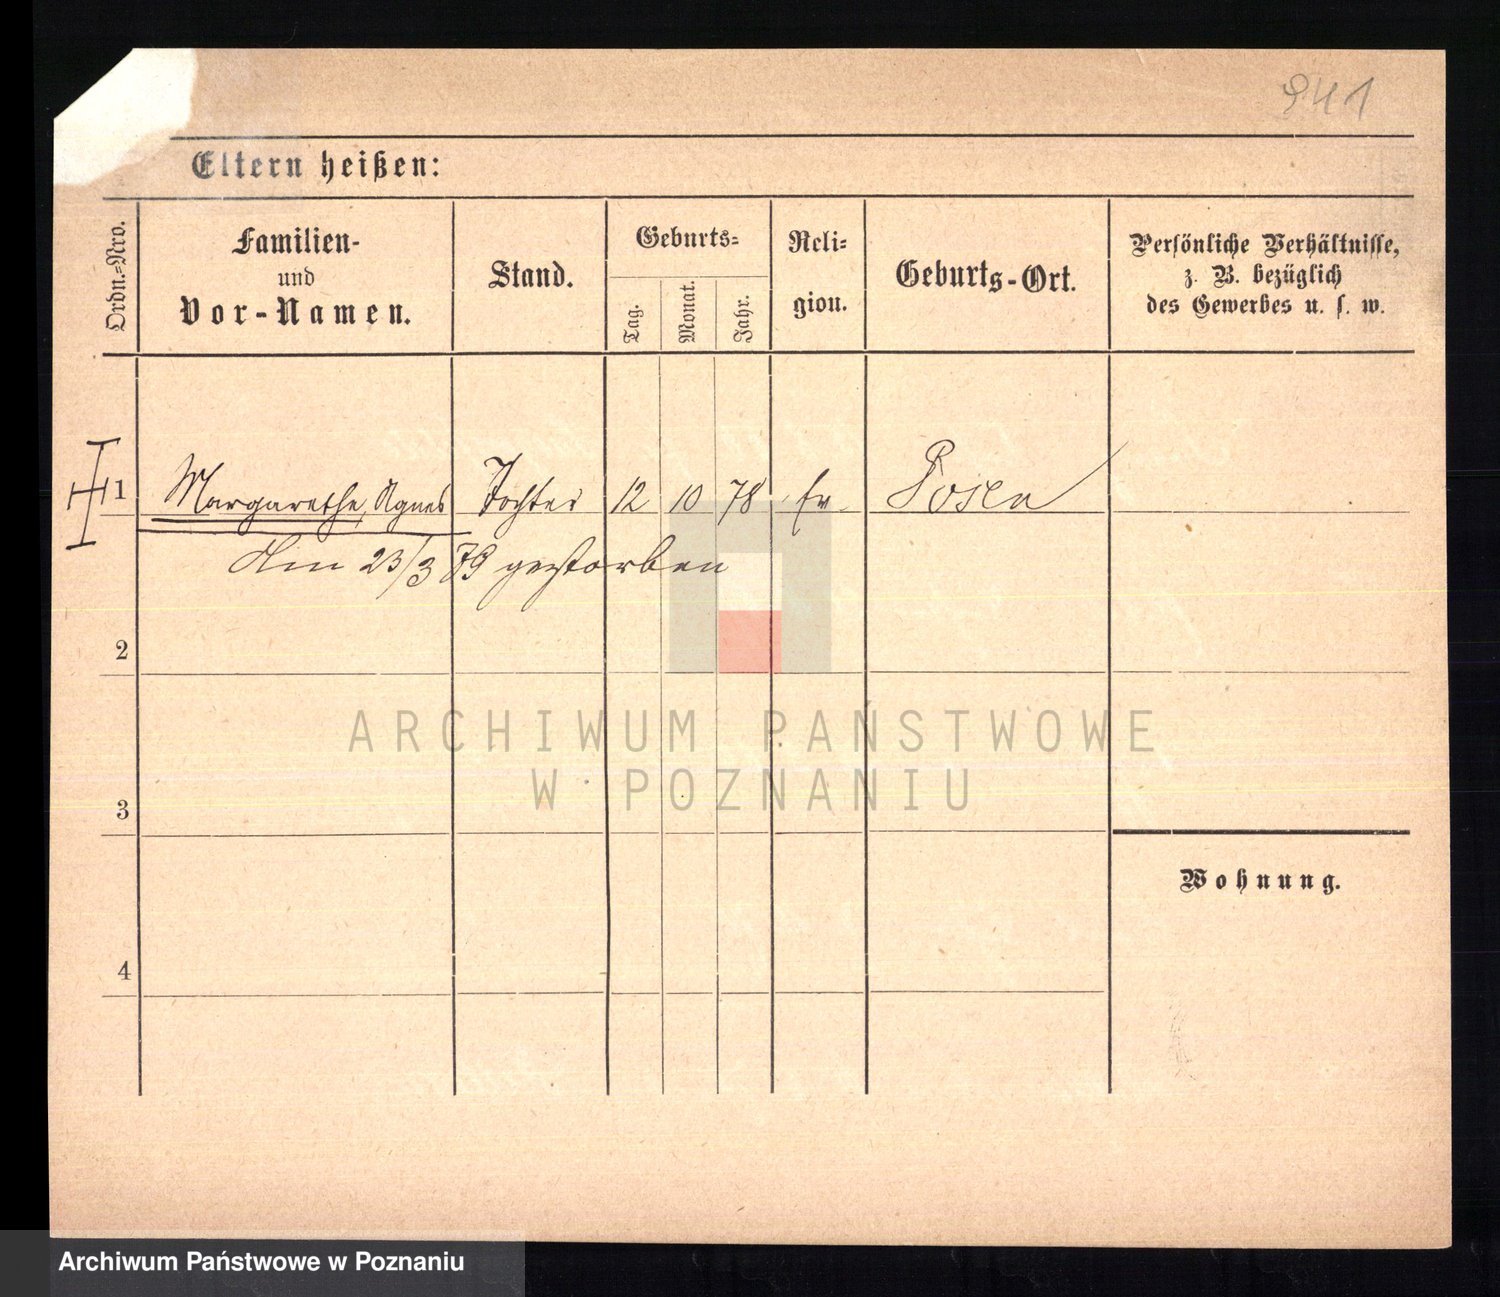 941
Eltern heißen:
Ordn.-Nro.
Familien-
und
Vor-Namen.
Stand.
Geburts-
Tag.
Monat.
Jahr.
Reli-
gion.
Geburts-Ort.
Persönliche Verhältnisse,
z. B. bezüglich
des Gewerbes u. s. w.
1 Margarethe, Agnes Tochter 12 10 78 Ev. Posen
Am 23/3 79 gestorben
2
ARCHIWUM PAŃSTWOWE
W POZNANIU
3
Wohnung.
4
Archiwum Państwowe w Poznaniu